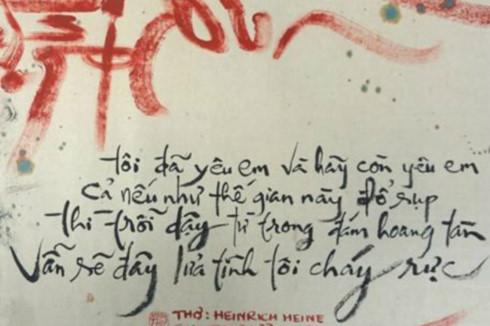 tôi đã yêu em và hãy còn yêu em
Cả nếu như thế gian này đổ sụp
Thì trỗi dậy từ trong đám hoang tàn
Vẫn sẽ đầy lửa tình tôi cháy rực
THƠ: HEINRICH HEINE